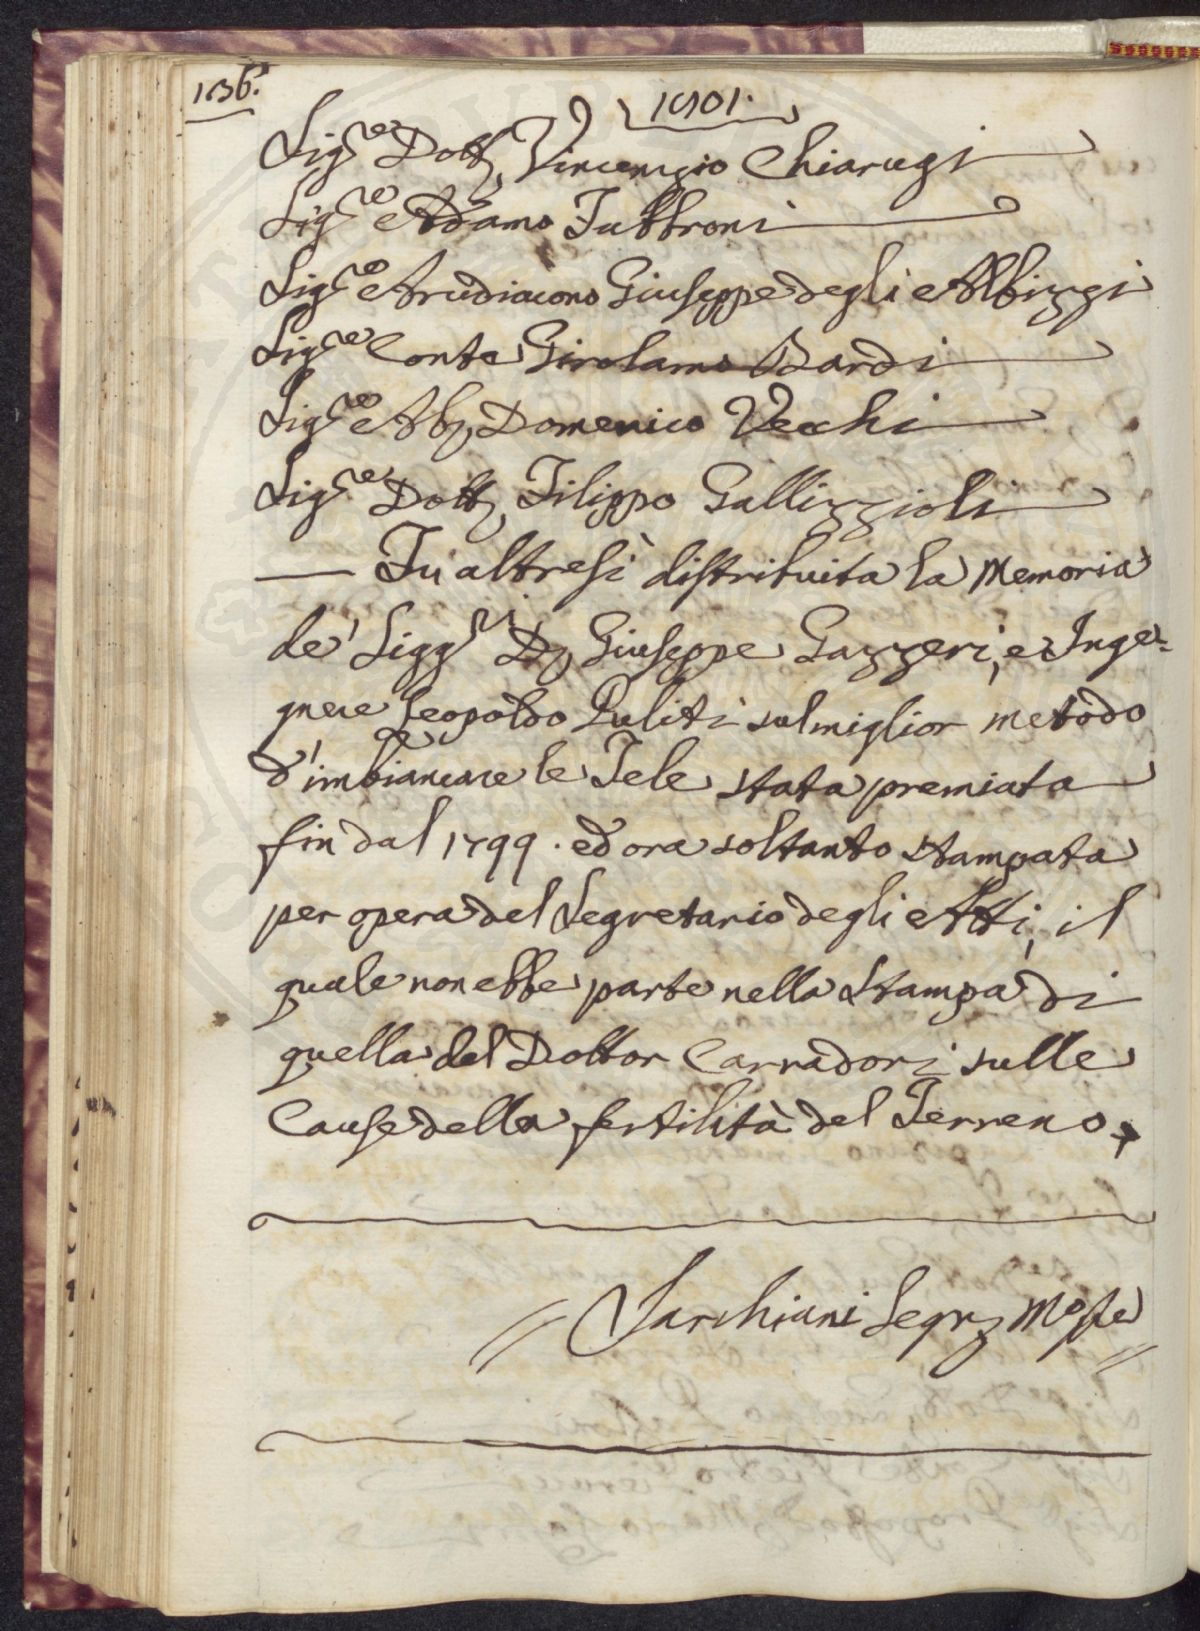 136.
1801.
Sig.re Dott. Vincenzio Chiarugi
Sig.re Adamo Fabbroni
Sig.re Arcidiacono Giuseppe degli Albizzi
Sig.re Conte Girolamo Bardi
Sig.re Ab. Domenico Vecchi
Sig.re Dott. Filippo Gallizzioli
— Fu altresì distribuita la Memoria
de' Sigg.ri D. Giuseppe Gazzeri, e Inge=
gnere Leopoldo Puliti sul miglior metodo
d'imbiancare le Tele stata premiata
fin dal 1799. ed ora soltanto stampata
per opera del Segretario degli Atti, il
quale non ebbe parte nella Stampa di
quella del Dottor Carradori sulle
Cause della fertilità del Terreno.
Sarchiani Segr.